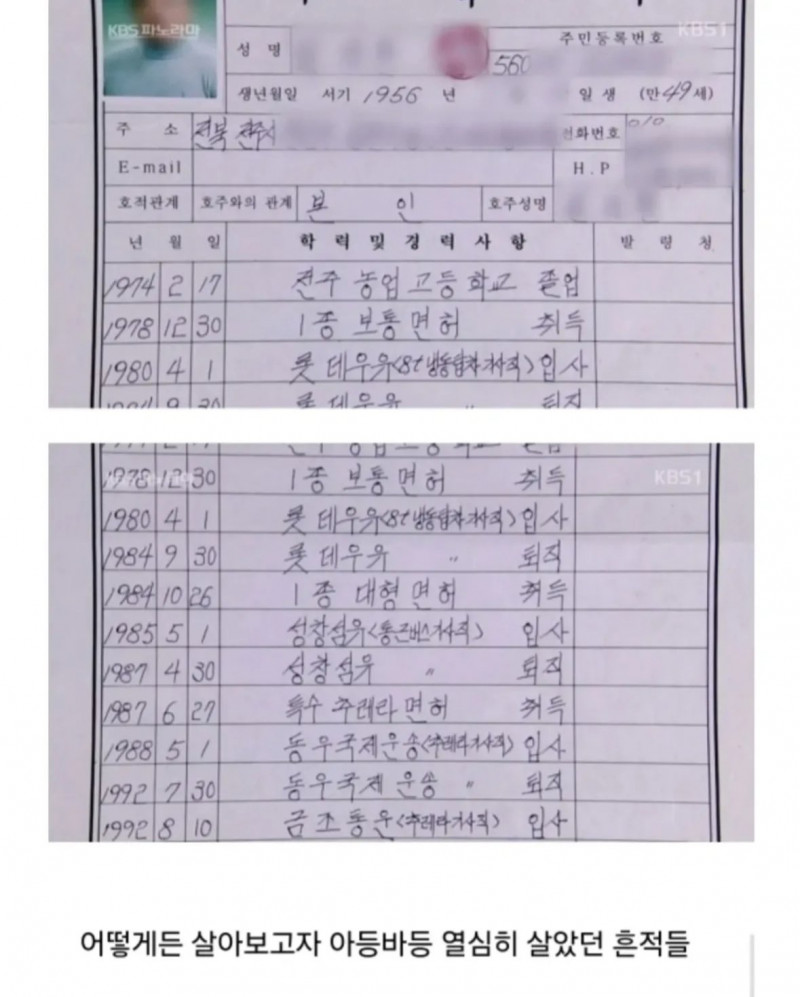 KBS 파노라마
KBS1
성 명
주민등록번호
560
생년월일 서기 1956 년 일생 (만 49세)
주 소 전북 전주시
전화번호 010
E-mail
H.P
호적관계 호주와의 관계 본 인 호주성명
년 월 일 학 력 및 경 력 사 항 발 령 청
1974 2 17 전주 농업 고등 학교 졸업
1978 12 30 1종 보통 면허 취득
1980 4 1 롯데우유(8t냉동탑차기사직) 입사
1984 9 30 롯데우유 〃 퇴직
KBS1
1978 12 30 1종 보통 면허 취득
1980 4 1 롯데우유(8t냉동탑차기사직) 입사
1984 9 30 롯데우유 〃 퇴직
1984 10 26 1종 대형 면허 취득
1985 5 1 성창섬유(통근버스기사직) 입사
1987 4 30 성창섬유 〃 퇴직
1987 6 27 특수 추레라 면허 취득
1988 5 1 동우국제운송(추레라기사직) 입사
1992 7 30 동우국제운송 〃 퇴직
1992 8 10 금조통운(추레라기사직) 입사
어떻게든 살아보고자 아등바등 열심히 살았던 흔적들